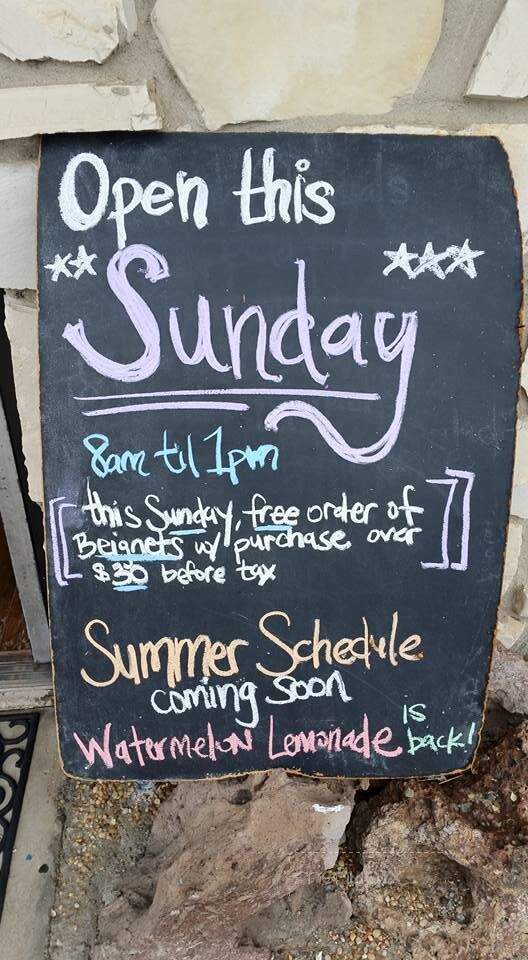 Open this
Sunday
8am til 1pm
this Sunday, free order of
Beignets w/ purchase over
$30 before tax
Summer Schedule
coming soon
Watermelon Lemonade is back!